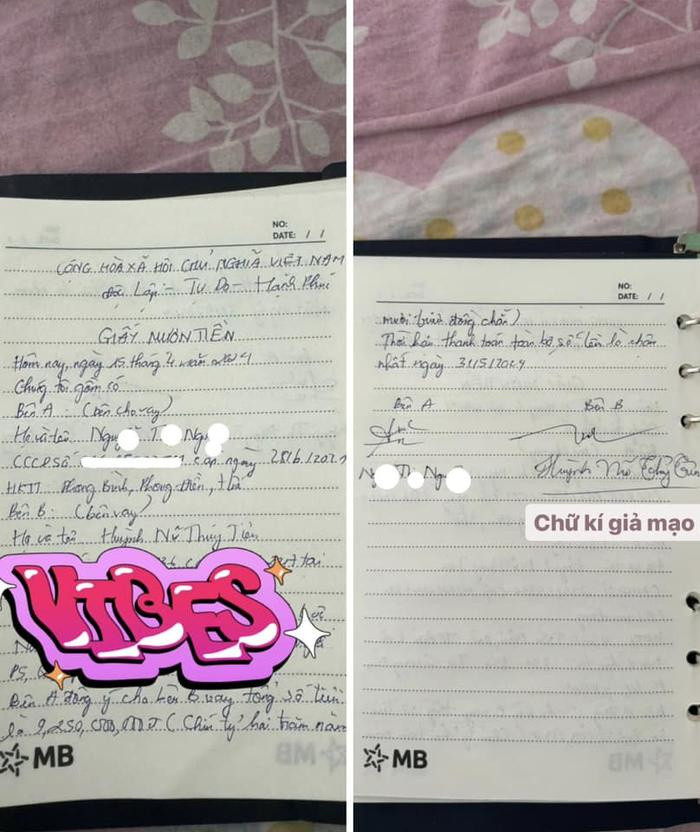 NO:
DATE: / /
CỘNG HÒA XÃ HỘI CHỦ NGHĨA VIỆT NAM
Độc Lập - Tự Do - Hạnh Phúc
GIẤY MƯỢN TIỀN
Hôm nay, ngày 15 tháng 4 năm 2024
Chúng tôi gồm có
Bên A : (bên cho vay)
Họ và tên
CCCD Số cấp ngày 28/6/2021
HKTT Phong Bình, Phong Điền, Huế
Bên B : (bên vay)
Họ và tên Huỳnh Nữ Thủy Tiên
VIBES
Bên A đồng ý cho bên B vay tổng số tiền
là 9,250,000,000đ (Chín tỷ hai trăm năm
MB
NO:
DATE: / /
mươi triệu đồng chẵn)
Thời hạn thanh toán toàn bộ số tiền là chậm
nhất ngày 31/5/2024
Bên A Bên B
Huỳnh Nữ Thủy Tiên
Chữ kí giả mạo
MB